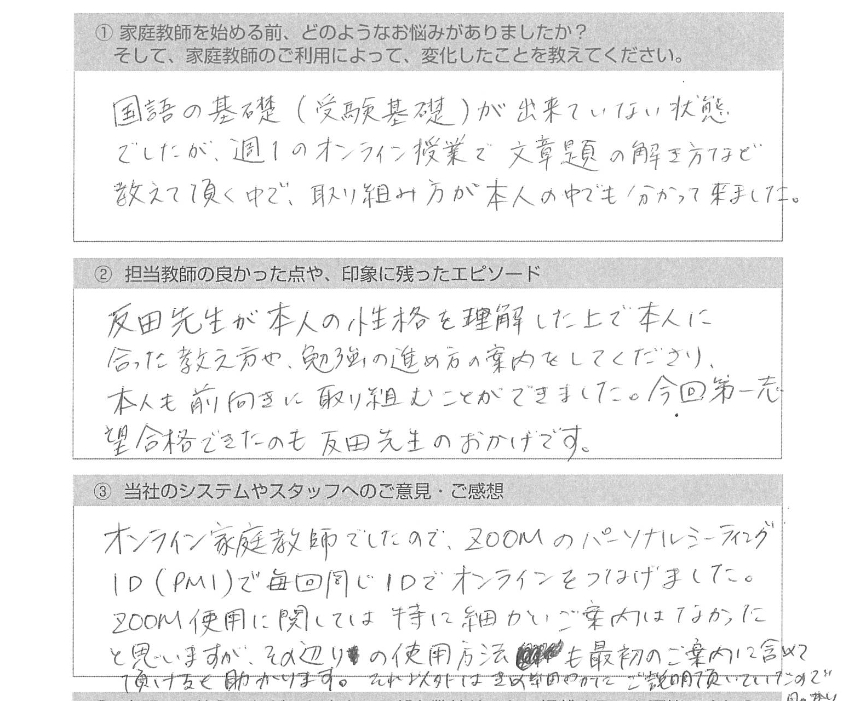 ① 家庭教師を始める前、どのようなお悩みがありましたか？
そして、家庭教師のご利用によって、変化したことを教えてください。
国語の基礎（受験基礎）が出来ていない状態
でしたが、週1のオンライン授業で文章題の解き方など
教えて頂く中で、取り組み方が本人の中でも分かって来ました。
② 担当教師の良かった点や、印象に残ったエピソード
反田先生が本人の性格を理解した上で本人に
合った教え方や、勉強の進め方の案内をしてくださり、
本人も前向きに取り組むことができました。今回第一志
望合格できたのも反田先生のおかげです。
③ 当社のシステムやスタッフへのご意見・ご感想
オンライン家庭教師でしたので、ZOOMのパーソナルミーティング
ID(PMI)で毎回同じIDでオンラインをつなげました。
ZOOM使用に関しては特に細かいご案内はなかった
と思いますが、その辺りの使用方法も最初のご案内に含めて
頂けると助かります。それ以外はきめ細やかにご説明頂いていたので